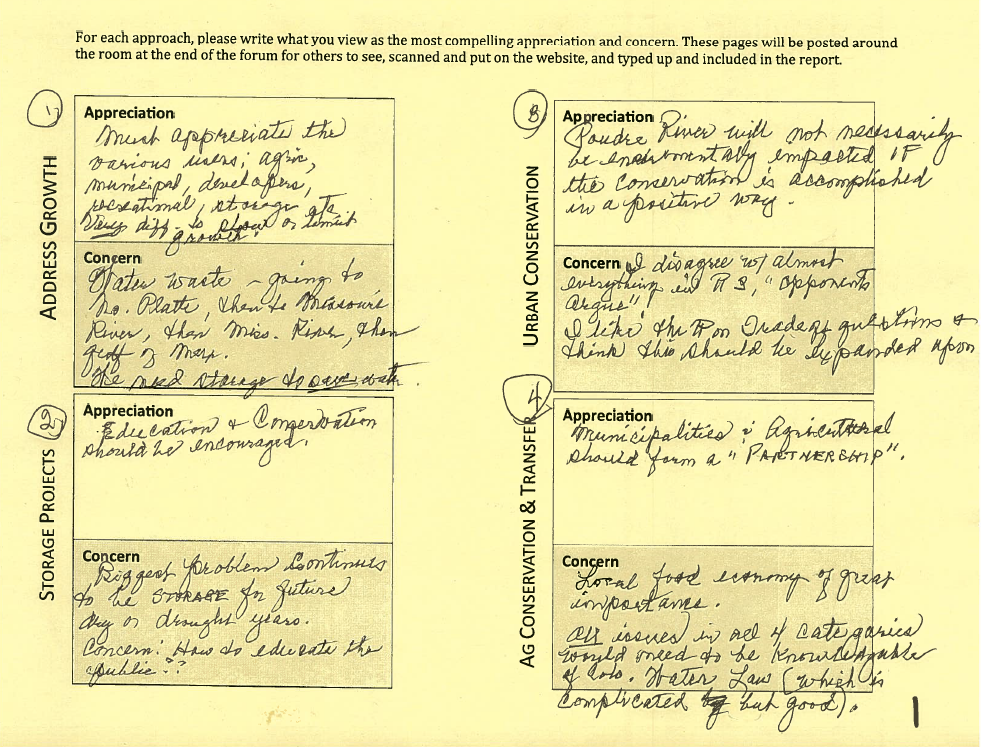 For each approach, please write what you view as the most compelling appreciation and concern. These pages will be posted around
the room at the end of the forum for others to see, scanned and put on the website, and typed up and included in the report.
1)
ADDRESS GROWTH
Appreciation
Must appreciate the
various users; agric,
municipal, developers,
recreational, storage etc
Very diff. to slow or limit
growth.
Concern
Water waste - going to
No. Platte, then to Missouri
River, then Miss. River, then
gulf of Mexi.
We need storage to save water.
2
STORAGE PROJECTS
Appreciation
Education & Conservation
should be encouraged.
Concern
Biggest problem continues
to be STORAGE for future
dry or drought years.
Concern: How to educate the
public??
3
URBAN CONSERVATION
Appreciation
Poudre River will not necessarily
be environmentally impacted IF
the conservation is accomplished
in a positive way.
Concern I disagree w/ almost
everything in # 3, "Opponents
argue"
I like the on Tradeoff questions &
think this should be expanded upon
4
AG CONSERVATION & TRANSFER
Appreciation
Municipalities & Agricultural
should form a "PARTNERSHIP".
Concern
Local food economy of great
importance.
All issues in all 4 categories
would need to be knowledgable
of Colo. Water Law (which is
complicated but good).
1